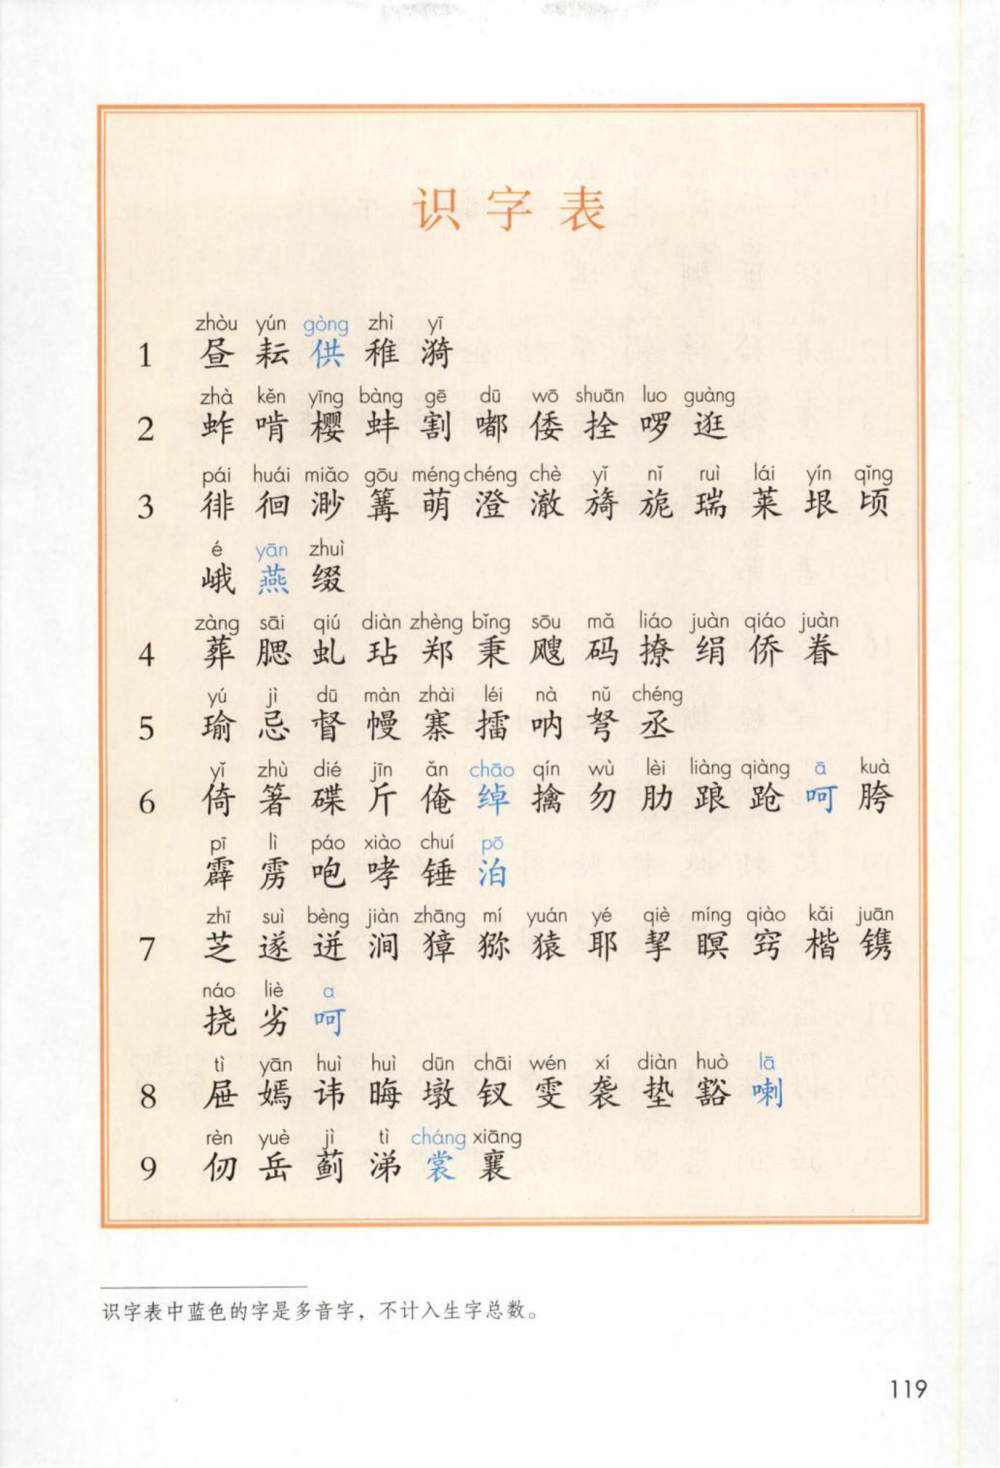 识字表
zhòu yún gòng zhì yī
1 昼 耘 供 稚 漪
zhà kěn yīng bàng gē dū wō shuān luo guàng
2 蚱 啃 樱 蚌 割 嘟 倭 拴 啰 逛
pái huái miǎo gōu méng chéng chè yǐ nǐ ruì lái yín qǐng
3 徘 徊 渺 篝 萌 澄 澈 旖 旎 瑞 莱 垠 顷
é yān zhuì
峨 燕 缀
zàng sāi qiú diàn zhèng bǐng sōu mǎ liáo juàn qiáo juàn
4 葬 腮 虬 玷 郑 秉 飕 码 撩 绢 侨 眷
yú jì dū màn zhài léi nà nǔ chéng
5 瑜 忌 督 幔 寨 擂 呐 弩 丞
yǐ zhù dié jīn ǎn chāo qín wù lèi liàng qiàng ā kuà
6 倚 箸 碟 斤 俺 绰 擒 勿 肋 踉 跄 呵 胯
pī lì páo xiào chuí pō
霹 雳 咆 哮 锤 泊
zhī suì bèng jiàn zhāng mí yuán yé qiè míng qiào kǎi juān
7 芝 遂 迸 涧 獐 猕 猿 耶 挈 瞑 窍 楷 镌
náo liè a
挠 劣 呵
tì yān huì huì dūn chāi wén xí diàn huò lā
8 屉 嫣 讳 晦 墩 钗 雯 袭 垫 豁 喇
rèn yuè jì tì cháng xiāng
9 仞 岳 蓟 涕 裳 襄
识字表中蓝色的字是多音字，不计入生字总数。
119